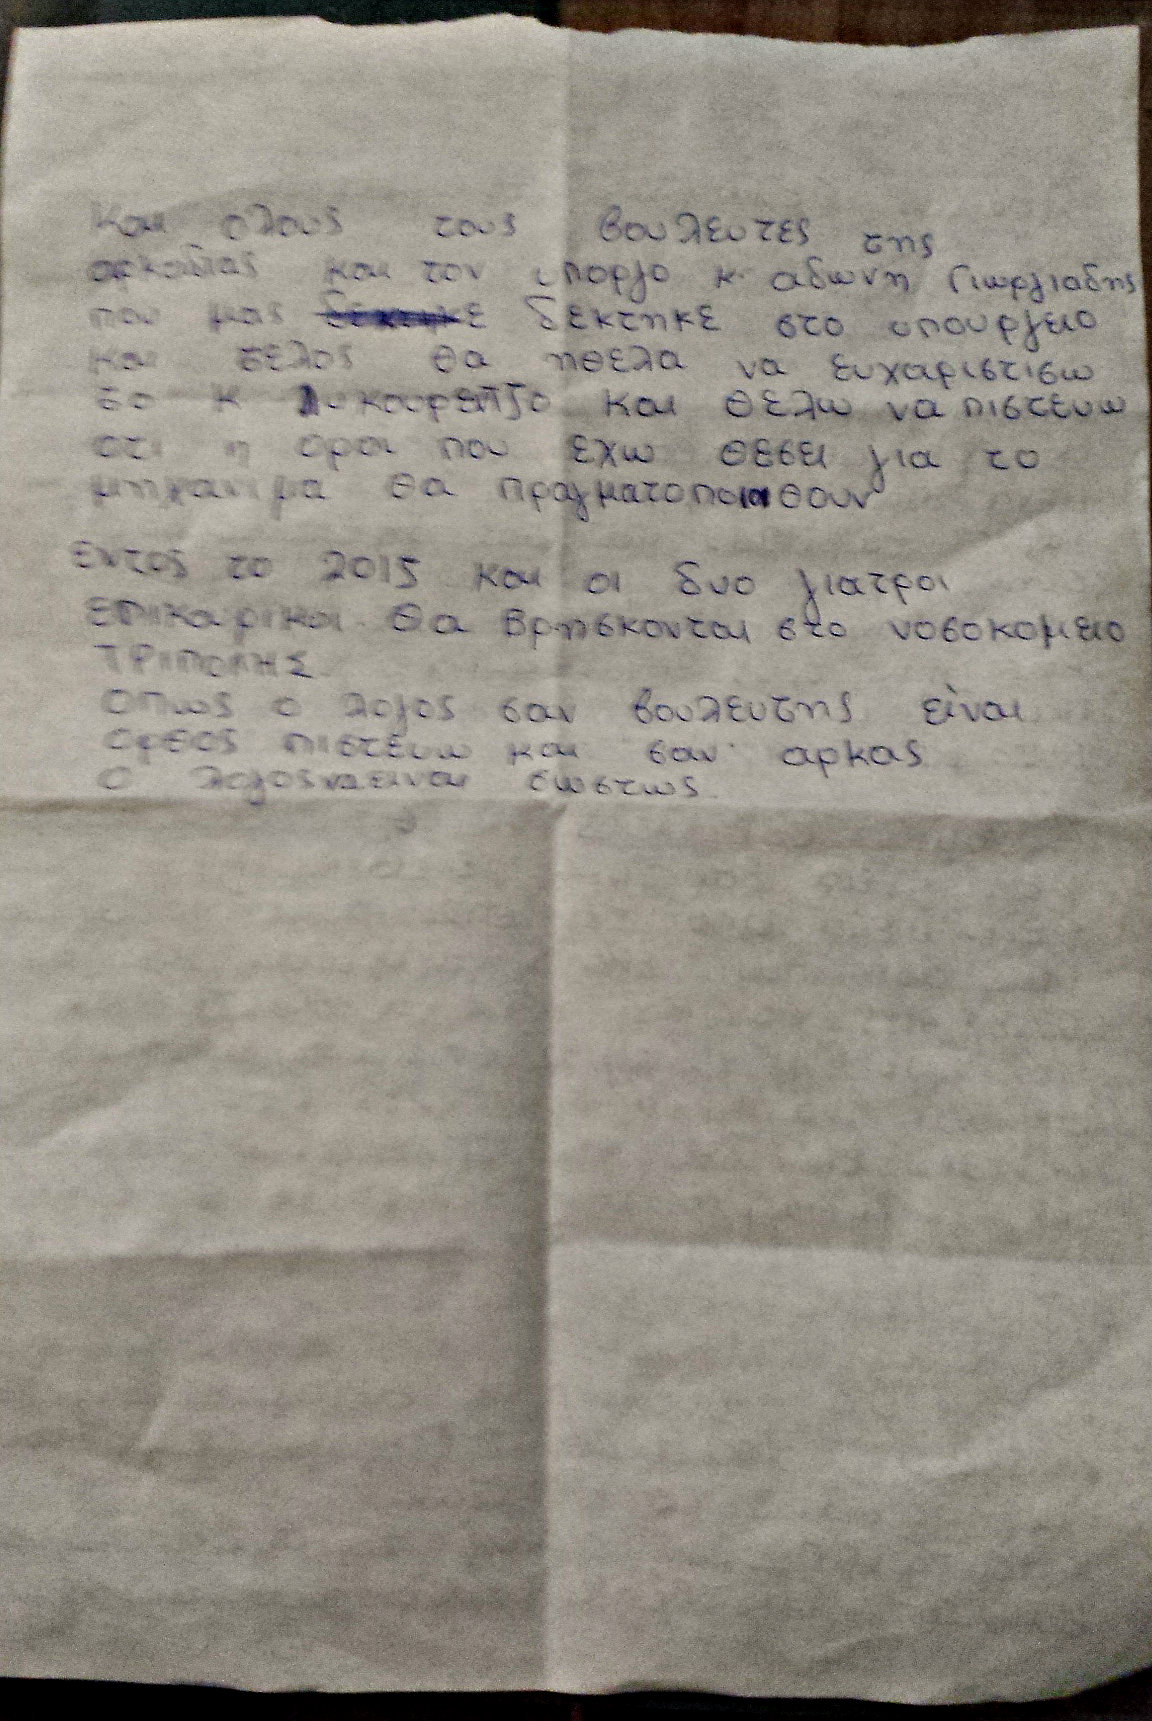 και ολους τους βουλευτες της
αρκαδιας και τον υποργο κ. αδωνη Γιωργιαδης
που μας δεκτηκε στο υπουργειο
και τελος θα ηθελα να ευχαριστισω
το κ Λυκουρεντζο και θελω να πιστευω
οτι η οροι που εχω θεσει για το
μηχανιμα θα πραγματοποιηθουν
εντος το 2015 και οι δυο γιατροι
επικαιρικοι θα βρησκονται στο νοσοκομειο
ΤΡΙΠΟΛΗΣ
οπως ο λογος σαν βουλευτης είναι
οφεος πιστευω και σαν αρκας
ο λογος να ειναι σωστως